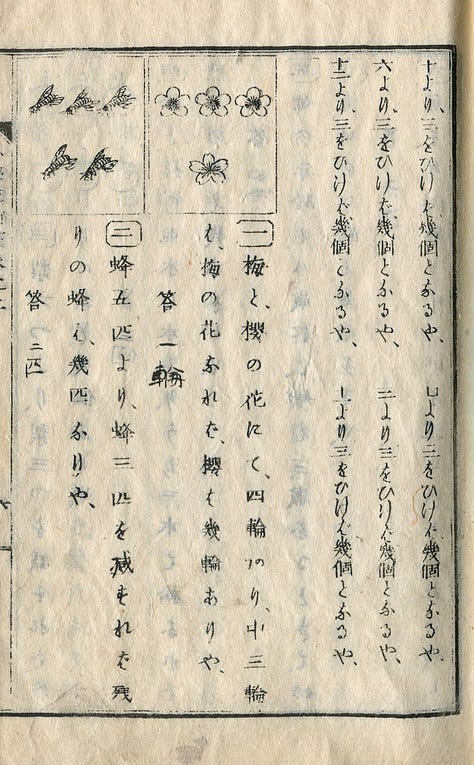 十より、三をひけば、幾個となるや、
七より三をひけば、幾個となるや、
六より、三をひけば、幾個となるや、
より三をひけば、幾個となるや、
十二より、三をひけば、幾個となるや、
より三をひけば、幾個となるや、
一 梅と、櫻の花にて、四輪あり、内三輪
は、梅の花なれば、櫻は幾輪ありや、
答 一輪
二 蜂五匹より、蜂三匹を減ずれば残
りの蜂は、幾匹なりや、
答 二匹